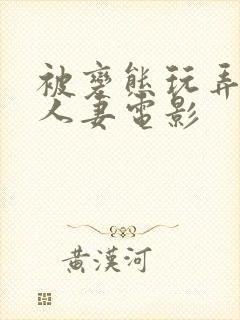 被变態玩弄
人妻電影
黄漢河